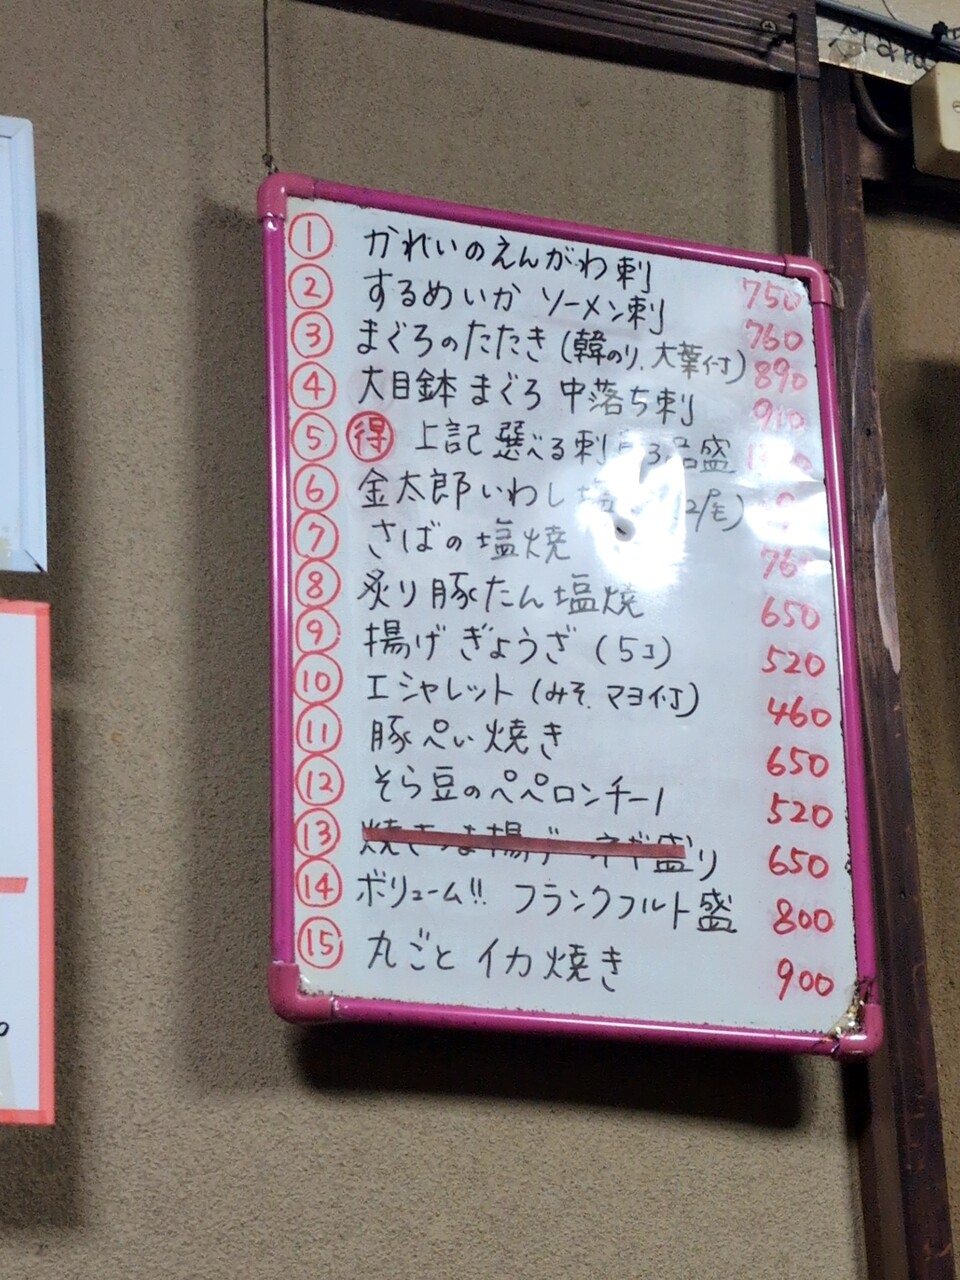 ① かれいのえんがわ刺 750
② するめいか ソーメン刺 760
③ まぐろのたたき (韓のり、大葉付) 890
④ 大目鉢まぐろ 中落ち刺 910
⑤ 得 上記 選べる刺 3品盛
⑥ 金太郎いわし 2尾)
⑦ さばの塩焼 76
⑧ 炙り豚たん塩焼 650
⑨ 揚げぎょうざ (5コ) 520
⑩ エシャレット (みそ、マヨ付) 460
⑪ 豚ぺい焼き 650
⑫ そら豆のペペロンチーノ 520
⑬ 焼きつま揚げ ネギ盛り 650
⑭ ボリューム!! フランクフルト盛 800
⑮ 丸ごとイカ焼き 900